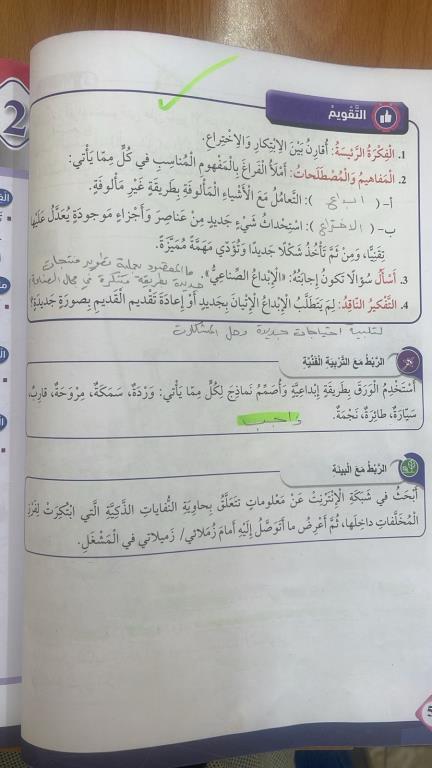 2
التَّقْويمُ
1. الْفِكْرَةُ الرَّئيسَةُ: أُقارِنُ بَيْنَ الِابْتِكارِ وَالِاخْتِراعِ.
2. الْمَفاهيمُ وَالْمُصْطَلَحاتُ: أَمْلَأُ الْفَراغَ بِالْمَفْهومِ الْمُناسِبِ في كُلٍّ مِمّا يَأْتي:
أ-( ابداع ): التَّعامُلُ مَعَ الْأَشْياءِ الْمَأْلوفَةِ بِطَريقَةٍ غَيْرِ مَأْلوفَةٍ.
ب-( الاختراع ): اسْتِحْداثُ شَيْءٍ جَديدٍ مِنْ عَناصِرَ وَأَجْزاءٍ مَوْجودَةٍ يُعَدَّلُ عَلَيْها
تِقَنِيًّا، وَمِنْ ثَمَّ تَأْخُذُ شَكْلًا جَديدًا وَتُؤَدّي مَهَمَّةً مُمَيَّزَةً.
3. أَسْأَلُ سُؤالًا تَكونُ إِجابَتُهُ: «الْإِبْداعُ الصِّناعِيُّ». ما المقصود بعملية تطوير منتجات
جديدة بطريقة مبتكرة في مجال الصناعة
4. التَّفْكيرُ النّاقِدُ: لِمَ يَتَطَلَّبُ الْإِبْداعُ الْإِتْيانَ بِجَديدٍ أَوْ إِعادَةَ تَقْديمِ الْقَديمِ بِصورَةٍ جَديدَةٍ؟
لتلبية احتياجات جديدة وحل المشكلات
الرَّبْطُ مَعَ التَّرْبِيَةِ الْفَنِّيَّةِ
أَسْتَخْدِمُ الْوَرَقَ بِطَريقَةٍ إِبْداعِيَّةٍ وَأُصَمِّمُ نَماذِجَ لِكُلٍّ مِمّا يَأْتي: وَرْدَةٌ، سَمَكَةٌ، مِرْوَحَةٌ، قارِبٌ،
سَيّارَةٌ، طائِرَةٌ، نَجْمَةٌ.
واجب
الرَّبْطُ مَعَ الْبيئَةِ
أَبْحَثُ في شَبَكَةِ الْإِنْتَرْنِتْ عَنْ مَعْلوماتٍ تَتَعَلَّقُ بِحاوِيَةِ النُّفاياتِ الذَّكِيَّةِ الَّتي ابْتُكِرَتْ لِفَرْزِ
الْمُخَلَّفاتِ داخِلَها، ثُمَّ أَعْرِضُ ما أَتَوَصَّلُ إِلَيْهِ أَمامَ زُمَلائي/ زَميلاتي في الْمَشْغَلِ.